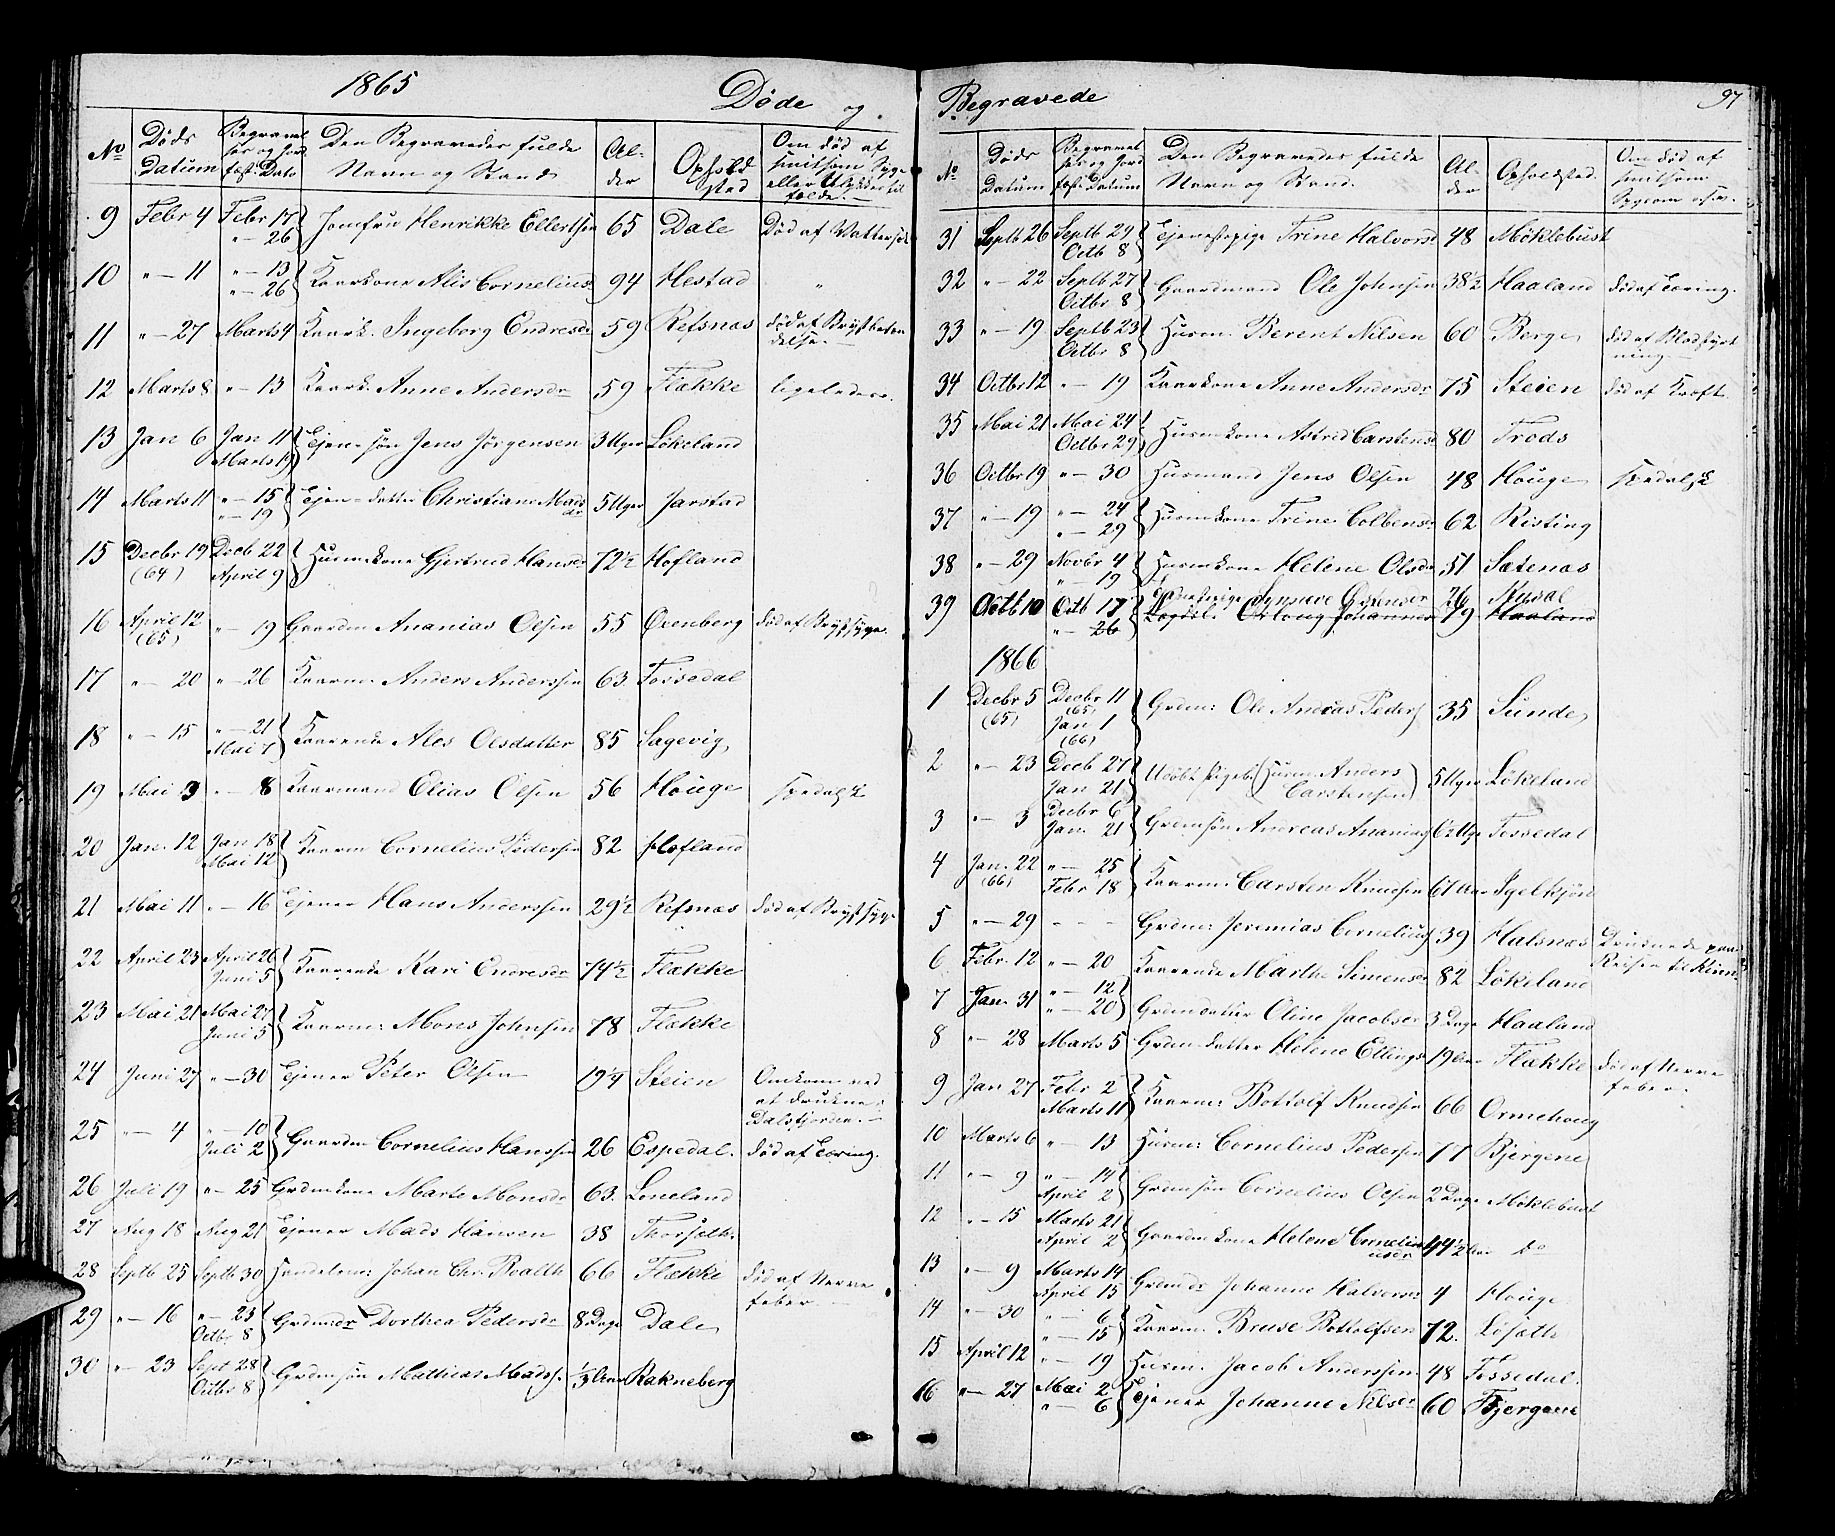 1865
Døde og
No Døds Datum Begravelses og Jordfæst. Dato Den Begravedes fulde Navn og Stand Alder Opholdsted Om død af smitsom Syge eller Ulykkestilfælde.
9 Febr 4 Febr 17 " 26 Jomfru Henrikke Ellertsen 65 Dale Død af Vattersot
10 " — 11 " — 13 " — 26 Kaarkone Alis Cornelius 94 Hestad "
11 " — 27 Marts 4 Kaark. Ingeborg Endresdr 59 Refsnæs død af Brystbetændelse.
12 Marts 8 " — 13 Kaark. Anne Andersdr 59 Flække ligeledes.
13 Jan 6 Jan 11 Marts 19 Tjen: søn Jens Jørgensen 3 Uger Løkeland
14 Marts 11 " — 15 " — 19 Tjen: datter Christiane Madsdr 5 Uger Jarstad
15 Decbr 19 (64) Decb 22 April 9 Husmkone Gjertrud Hansdr 72½ Hofland
16 April 12 (65) " — 19 Gaardm Ananias Olsen 55 Ørenberg død af Brystsyge.
17 " — 20 " — 26 Kaarm: Anders Anderssen 63 Fossedal
18 " — 15 " — 21 Mai 7 Kaarenke Ales Olsdatter 85 Sagevig
19 Mai 3 " — 8 Kaarmand Elias Olsen 56 Houge spedalsk
20 Jan. 12 Jan 18 Mai 12 Kaarm Cornelius Pedersen 82 Hofland
21 Mai 11 " — 16 Tjener Hans Anderssen 29½ Refsnæs død af Brystsyge
22 April 23 April 26 Juni 5 Kaarenke Kari Endresdr 74½ Flække
23 Mai 21 Mai 27 Juni 5 Kaarm: Mons Johnsen 78 Flække
24 Juni 27 " — 30 Tjener Peter Olsen 19¼ Steien Omkom ved at drukne i Dalsfjorden.
25 " — 4 " — 10 Juli 2 Gaardm Cornelius Hanssen 26 Espedal. død af Tæring.
26 Juli 19 " — 25 Grdmkone Marte Monsdr 63 Loneland
27 Aug 18 Aug 21 Tjener Mads Hansen 38 Thorseth.
28 Septb 25 Septb 30 Handelsm: Johan Chr. 66 Flække død af Nerve feber
29 " — 16 " — 23 Octbr 8 Grdmdr Dorthea Pedersdr 8 Dage Dale
30 " — 23 Sept 28 Octbr 8 Grdmsøn Mathias Madss. ⅓ Aar Rakneberg
Begravede
97
No Døds Datum Begravelses og Jordfæst. Datum Den Begravedes fulde Navn og Stand. Alder Opholdsted. Om død af smitsom Sygdom osv.
31 Septb 26 Septb 29 Octb 8 Tjenestepige Trine Halvorsd 48 Møklebust
32 " — 22 Septb 27 Octbr 8 Gaardmand Ole Johnsen 38½ Haaland død af Tæring.
33 " — 19 Septb 23 Octbr 8 Husm. Berent Nilsen 60 Berge død af Blodstyrtning
34 Octbr 12 " — 19 Kaarkone Anne Andersdr 75 Steien død af Kræft
35 Mai 21 Mai 24 Octbr 29 Husmkone Astrid Carstensd 80 Trods
36 Octbr 19 " — 30 Husmand Jens Olsen 48 Houge spedalsk
37 " — 19 " — 24 " — 29 Husmkone Trine Colbensd 62 Risting
38 " — 29 Novbr 4 " — 19 Husmkone Helene Olsdr 51 Sætenæs
39 Octb 10 Octb 17 " — 26 Synneve 26 Nysal
Johannesd 79 Haaland
1866
1 Decbr 5 (65) Decbr 11 (65) Jan 1 (66) Grdm: Ole Andreas Peders 35 Sunde
2 " — 23 Decb 27 Jan 21 Udøbt Pigeb. (Husm Anders Carstensen) 5 Uger Løkeland
3 " — 3 Decbr 6 Jan. 21 Grdmsøn Andreas Ananias 6½ Uge Fossedal
4 Jan. 22 (66) " — 25 Febr 18 Kaarm. Carsten Knudsen 67 Aar Igelkjøn
5 " — 29 - - - Grdm: Jeremias Cornelius 39 Halsnæs Druknede paa Reisen til Kinn
6 Febr. 12 " — 20 Kaarenke Marthe Simensd 82 Løkeland
7 Jan. 31 " — 12 " — 20 Grdmdatter Oline Jacobsd 3 Dage Haaland
8 " — 28 Marts 5 Grdm datter Helene Ellings 19 Aar Flække død af Nerve feber.
9 Jan 27 Febr 2 Marts 11 Kaarm: Bottolf Knudsen 66 Ormehoug
10 Marts 6 " — 13 Husm: Cornelius Pedersen 77 Bjergene
11 " — 9 " — 14 April 2 Grdmsøn Cornelius Olsen 2 Dage Møklebust
12 " — 15 Marts 21 April 2 Gaardmkone Helene Corneliusdr 44½ Aar do
13 " — 9 Marts 14 April 15 Grdmdr Johanne Halvorsd 4 Houge
14 " — 30 " — 6 " — 15 Kaarm. Bruse Bottolfsen 72. Løseth
15 April 12 " — 19 Husm. Jacob Anderssen 48 Fossedal.
16 " — 27 Mai 2 " — 6 Tjener Johanne Nilsdr 60 Bjergene